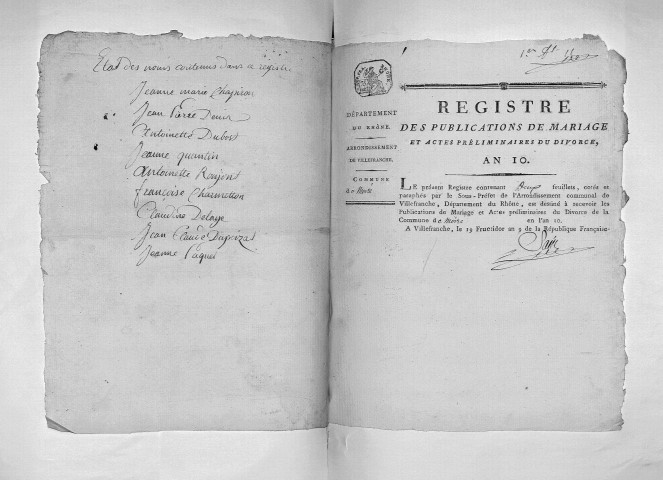 Etat des noms contenus dans ce registre
Jeanne marie Chapiron
Jean Pierre Denis
Antoinette Dubost
Jeanne quantin
Antoinette
francoise Charmetton
Claudine Delaye
Jean Claude
Jeanne Paquet
1.er
DÉPARTEMENT
DU RHÔNE.
ARRONDISSEMENT
DE VILLEFRANCHE.
COMMUNE
REGISTRE
DES PUBLICATIONS DE MARIAGE
ET ACTES PRÉLIMINAIRES DU DIVORCE,
AN 10.
LE présent Registre contenant Deux feuillets, cotés et
paraphés par le Sous-Préfet de l'Arrondissement communal de
Villefranche, Département du Rhône, est destiné à recevoir les
Publications de Mariage et Actes préliminaires du Divorce de la
Commune de en l'an 10.
A Villefranche, le 19 Fructidor an 9 de la République Française.